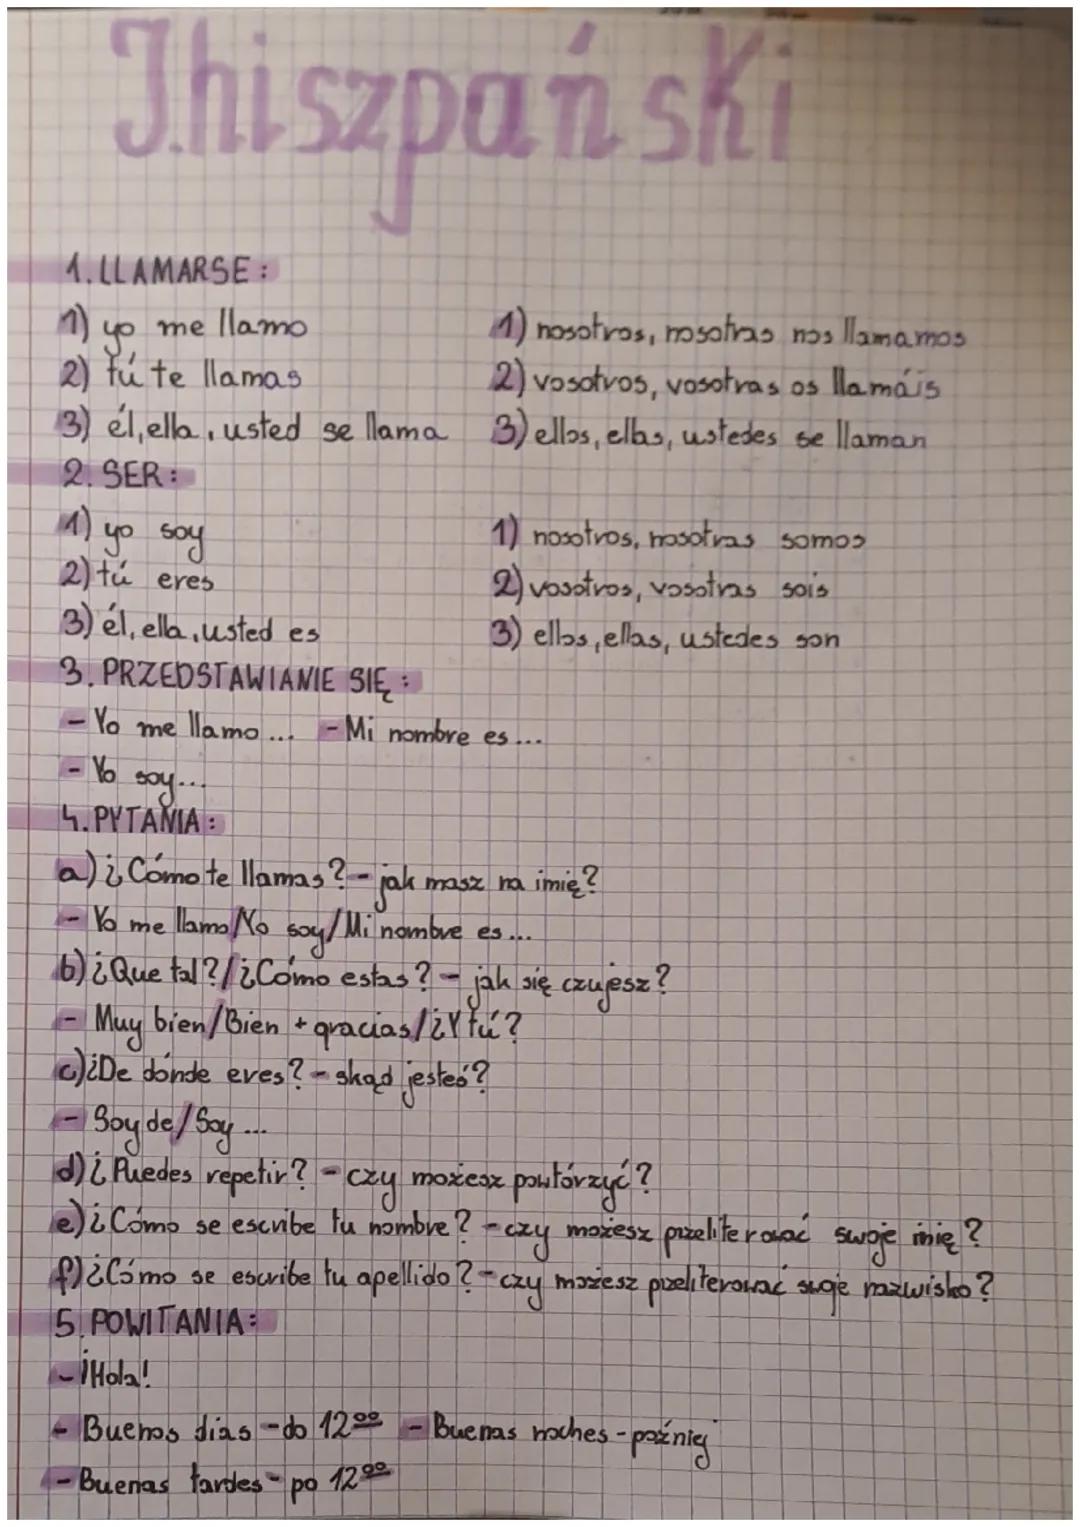 J.hiszpański
1. LLAMARSE:
1) yo me llamo
1) nosotros, nosotras nos llamamos
2) tú te llamas
2) vosotros, vosotras os llamáis
3) él, ella, usted se llama
3) ellos, ellas, ustedes se llaman
2. SER:
1) yo soy
1) nosotros, nosotras somos
2) tú eres
2) vosotros, vosotras sois
3) él, ella, usted es
3) ellos, ellas, ustedes son
3. PRZEDSTAWIANIE SIĘ:
- Yo me llamo... - Mi nombre es...
- Yo soy...
4. PYTANIA:
a) ¿Cómo te llamas? - jak masz na imię?
- Yo me llamo/Yo soy/Mi nombre es...
b) ¿Que tal?/¿Cómo estas? - jak się czujesz?
- Muy bien/Bien + gracias/¿Y tú?
c) ¿De dónde eres? - skąd jesteś?
- Soy de/Soy...
d) ¿Puedes repetir? - czy możesz powtórzyć?
e) ¿Cómo se escribe tu nombre? - czy możesz przeliterować swoje imię?
f) ¿Cómo se escribe tu apellido? - czy możesz przeliterować swoje nazwisko?
5. POWITANIA:
- ¡Hola!
- Buenos dias - do 12⁰⁰ - Buenas noches - poźniej
- Buenas tardes - po 12⁰⁰